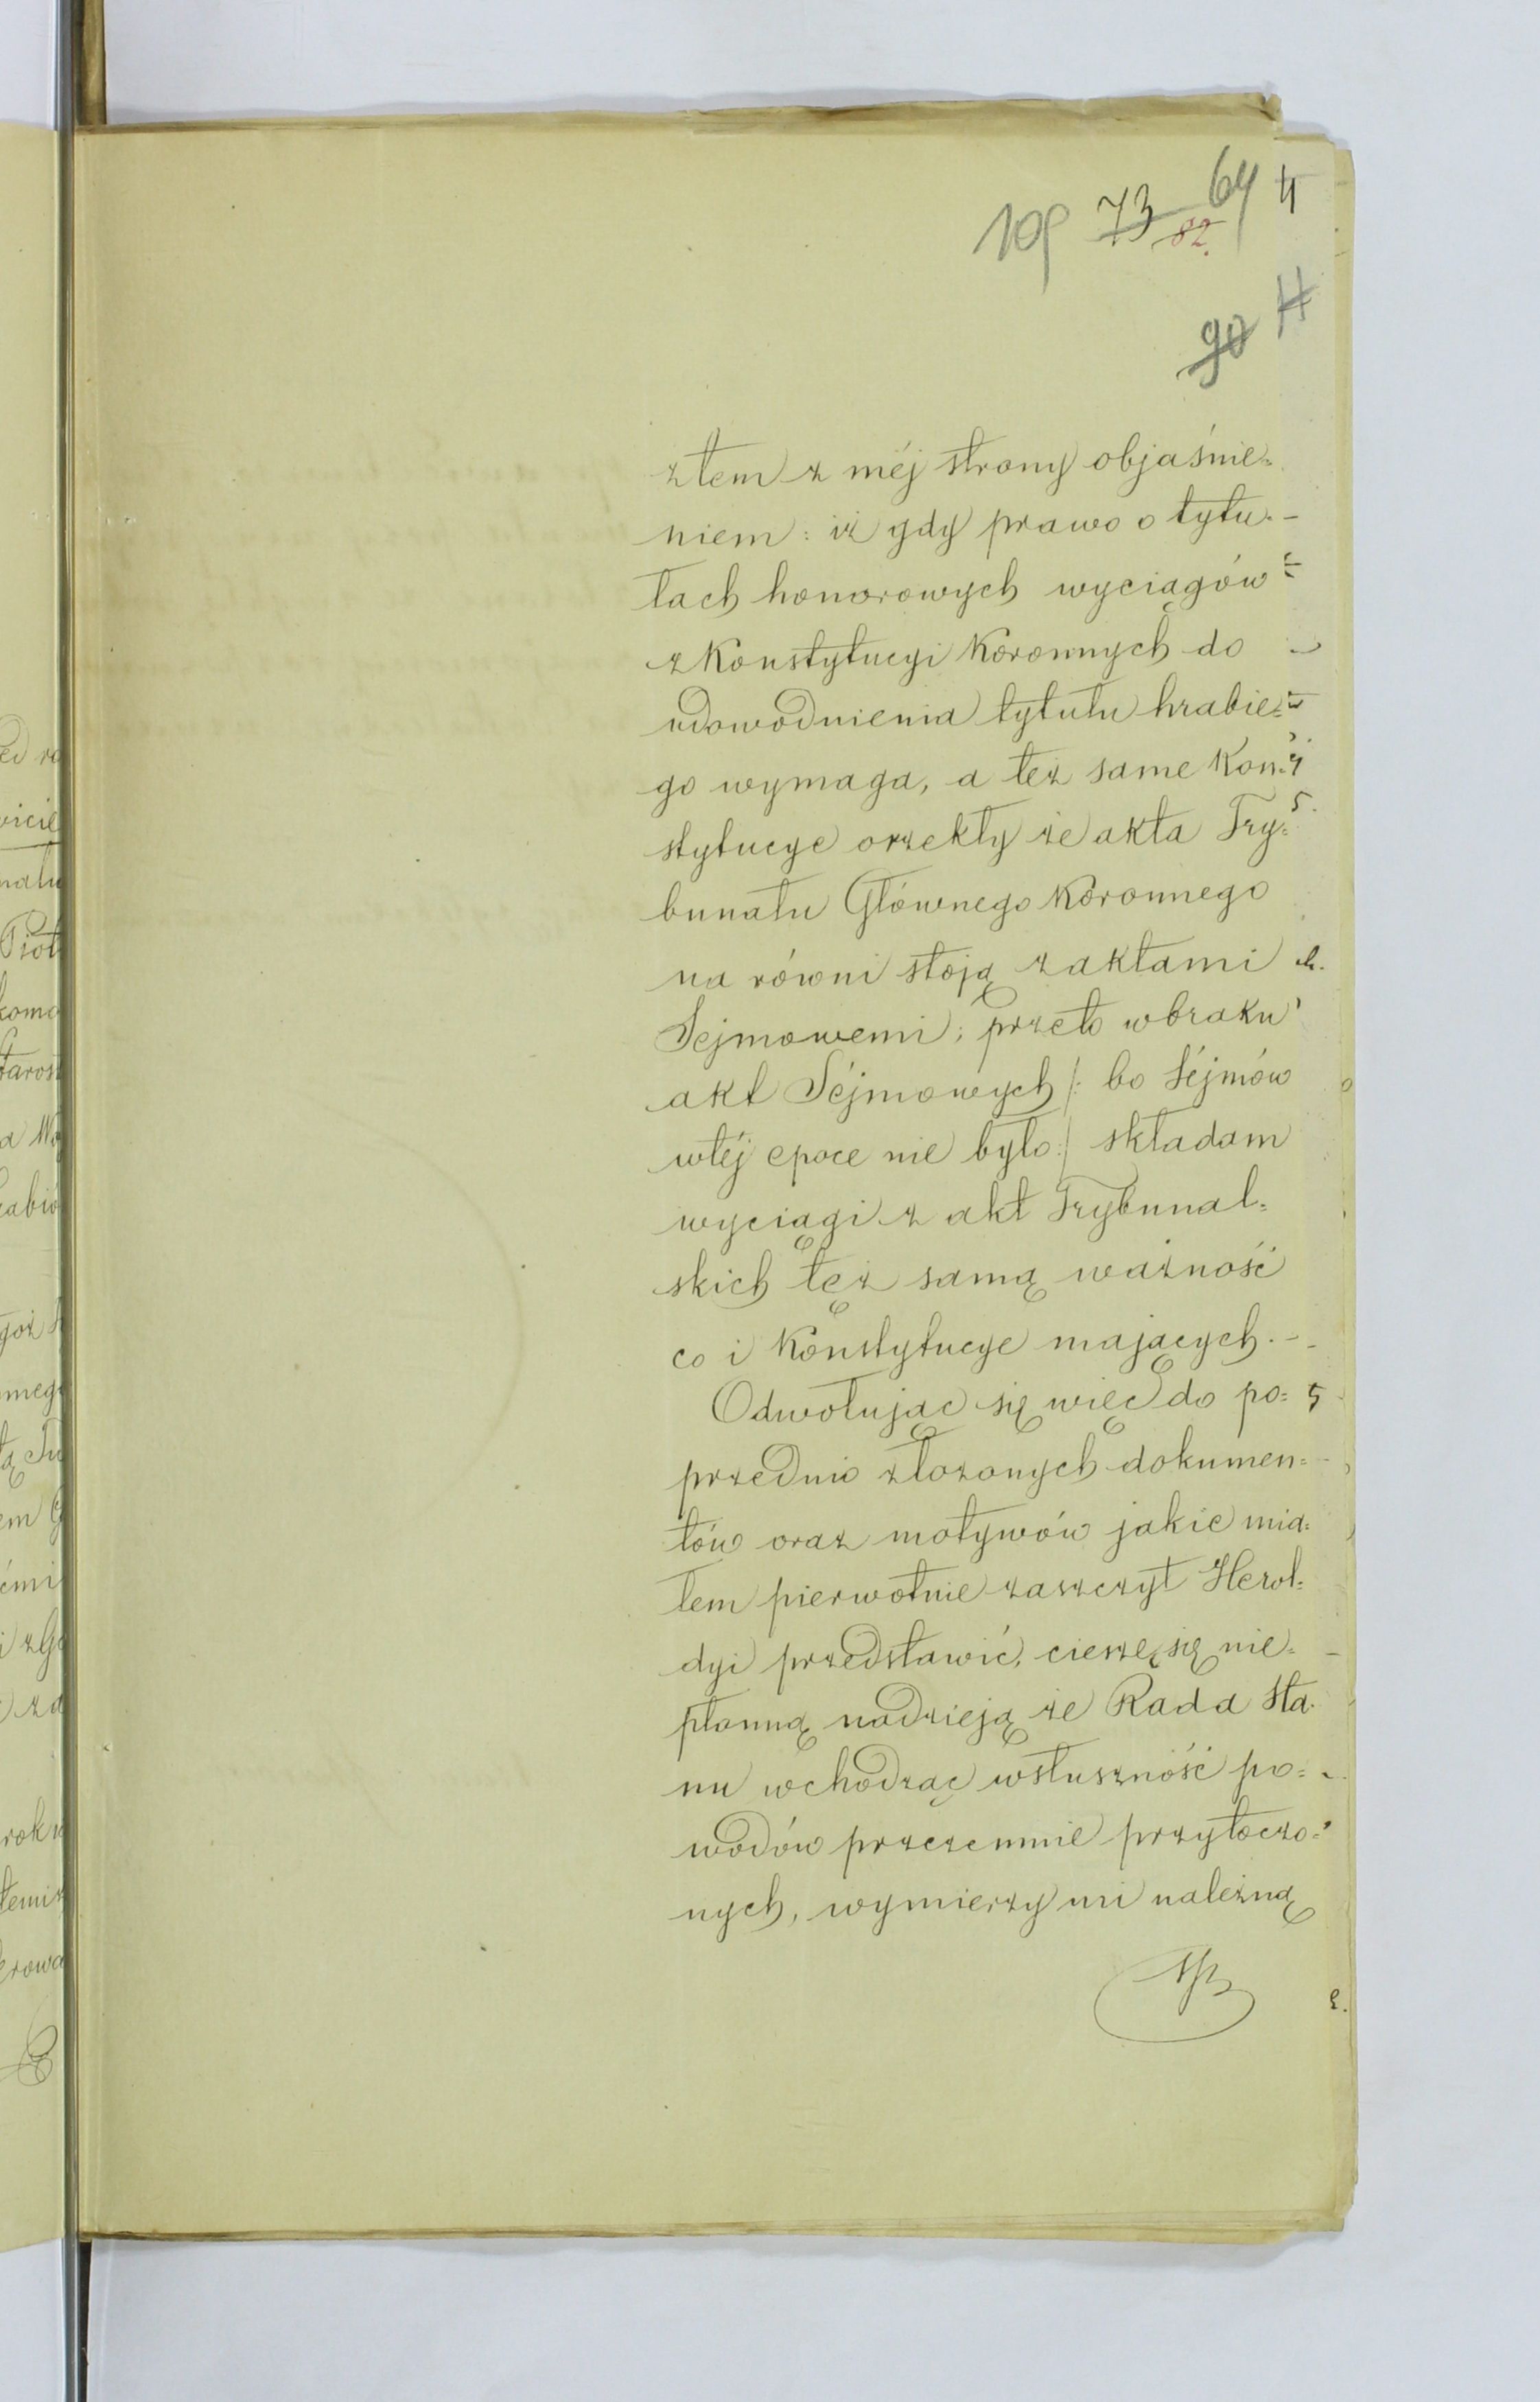 109 73 64 4
82.
90 H
ztem z méj strony objaśnie=
niem: iż gdy prawo o tytu.-
łach honorowych wyciągów
z Konstytucyi Koronnych do
udowodnienia tytułu hrabie=
go wymaga, a też same Kon=
stytucye orzekły że akta Try=
bunału Głównego Koronnego
na równi stoją z aktami
Sejmowemi; przeto w braku
akt Séjmowych /: bo Séjmów
w téj epoce nie było :/ składam
wyciągi z akt Trybunal=
skich też samą ważność
co i Konstytucye mających.-
Odwołując się więc do po=
przednio złożonych dokumen=
tów oraz motywów jakie mia=
łem pierwotnie zaszczyt Herol=
dyi przedstawić, cieszę się nie=
płonną nadzieją że Rada Sta=
nu wchodząc w słuszność po=
wodów przezemnie przytoczo=
nych, wymierzy mi należną